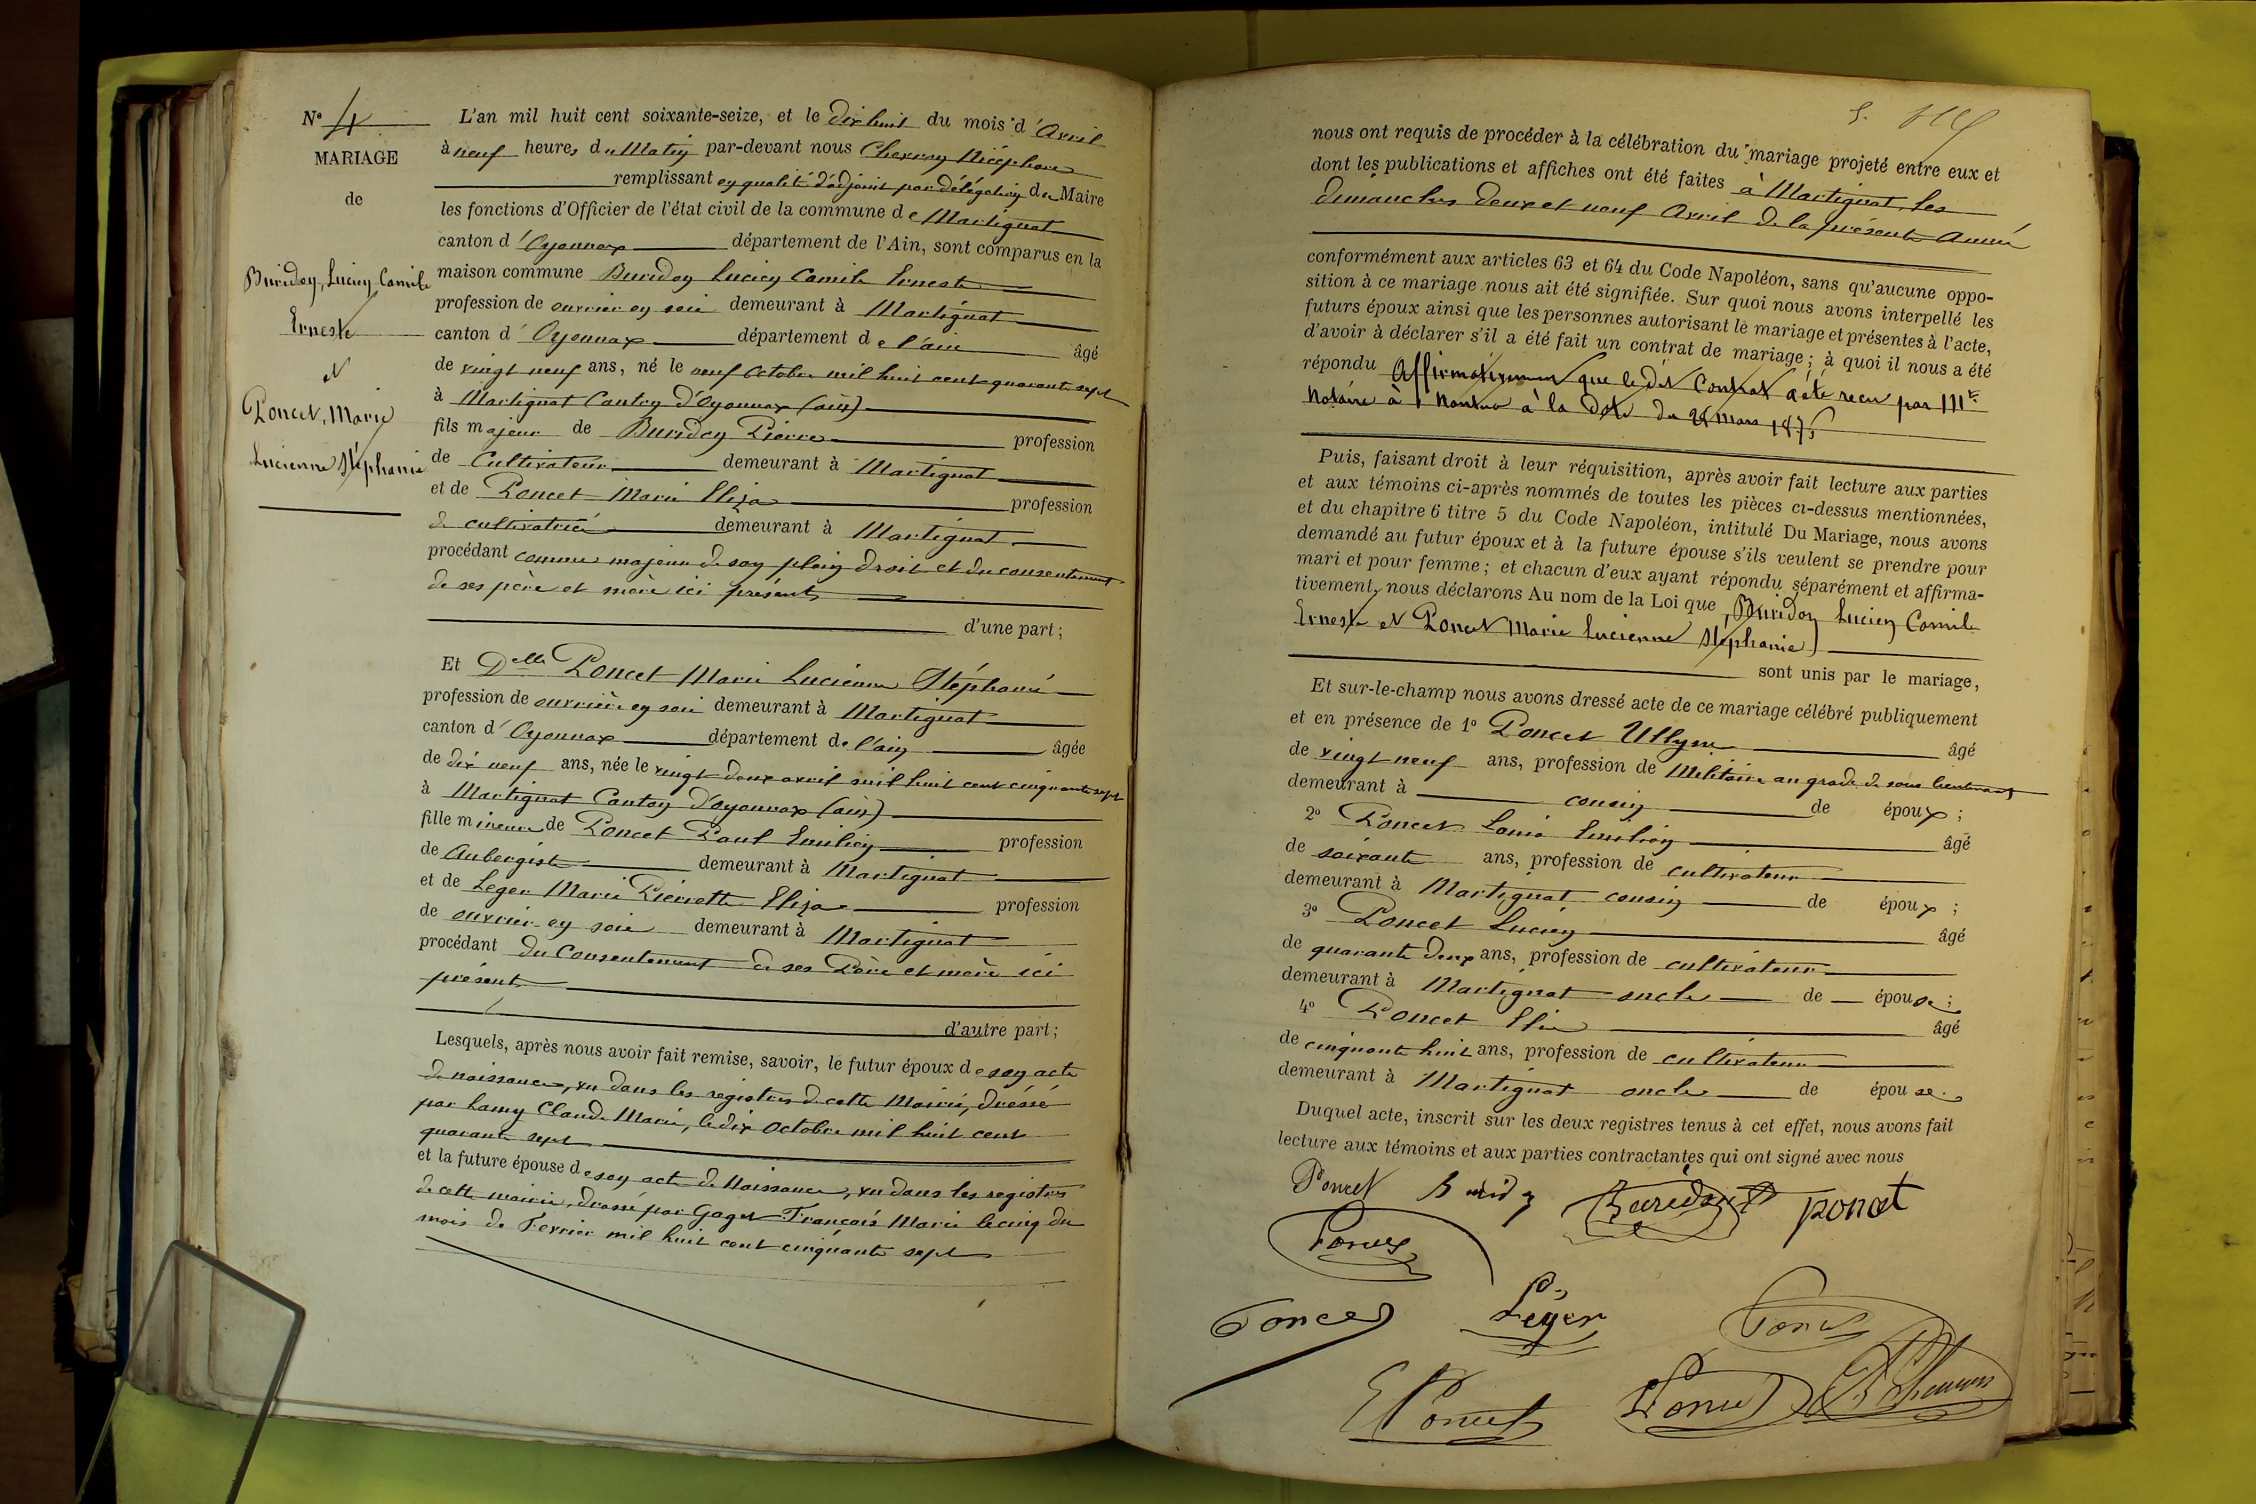 N° 4
MARIAGE
de
Buridoy, Lucien Camile
Erneste
et
Poncet, Marie
Lucienne Stéphanie
L'an mil huit cent soixante-seize, et le dix huit du mois d'Avril
à neuf heures du Matin par-devant nous Chevron Nicéphore
remplissant en qualité d'adjoint par délégation du Maire
les fonctions d'Officier de l'état civil de la commune de Martignat
canton d'Oyonnax département de l'Ain, sont comparus en la
maison commune Buridoy Lucien Camile Erneste
profession de ouvrier en soie demeurant à Martignat
canton d'Oyonnax département de l'ain âgé
de vingt neuf ans, né le neuf Octobre mil huit cent quarante sept
à Martignat Canton d'Oyonnax (ain)
fils majeur de Buridoy Pierre profession
de Cultivateur demeurant à Martignat
et de Poncet Marie Eliza profession
de cultivatrice demeurant à Martignat
procédant comme majeur de son plein droit et du consentement
de ses père et mère ici présents
d'une part;
Et Delle Poncet Marie Lucienne Stéphanie
profession de ouvrière en soie demeurant à Martignat
canton d'Oyonnax département de l'ain âgée
de dix neuf ans, née le vingt deux avril mil huit cent cinquante sept
à Martignat Canton d'Oyonnax (ain)
fille mineure de Poncet Paul Emilien profession
de Aubergiste demeurant à Martignat
et de Leger Marie Pierrette Eliza profession
de ouvrier en soie demeurant à Martignat
procédant du Consentement de ses Père et mère ici
présents
d'autre part;
Lesquels, après nous avoir fait remise, savoir, le futur époux de son acte
de naissance, vu dans les registres de cette Mairie, dréssé
par Lamy Claude Marie, le dix Octobre mil huit cent
quarante sept
et la future épouse de son acte de Naissance, vu dans les registres
de cette mairie, dressé par Goget François Marie le cinq du
mois de Fevrier mil huit cent cinquante sept
5.
nous ont requis de procéder à la célébration du mariage projeté entre eux et
dont les publications et affiches ont été faites à Martignat, les
dimanches deux et neuf Avril de la présente Année
conformément aux articles 63 et 64 du Code Napoléon, sans qu'aucune oppo-
sition à ce mariage nous ait été signifiée. Sur quoi nous avons interpellé les
futurs époux ainsi que les personnes autorisant le mariage et présentes à l'acte,
d'avoir à déclarer s'il a été fait un contrat de mariage; à quoi il nous a été
répondu Affirmativement que le dit Contrat a été reçu par Me
Notaire à Nantua à la date du 28 Mars 1876
Puis, faisant droit à leur réquisition, après avoir fait lecture aux parties
et aux témoins ci-après nommés de toutes les pièces ci-dessus mentionnées,
et du chapitre 6 titre 5 du Code Napoléon, intitulé Du Mariage, nous avons
demandé au futur époux et à la future épouse s'ils veulent se prendre pour
mari et pour femme; et chacun d'eux ayant répondu séparément et affirma-
tivement, nous déclarons Au nom de la Loi que Buridoy Lucien Camile
Erneste et Poncet Marie Lucienne Stéphanie
sont unis par le mariage,
Et sur-le-champ nous avons dressé acte de ce mariage célébré publiquement
et en présence de 1° Poncet Ullysse âgé
de vingt neuf ans, profession de Militaire au grade de sous lieutenant
demeurant à cousin de époux;
2° Poncet Louis Emilien âgé
de soixante ans, profession de cultivateur
demeurant à Martignat cousin de époux;
3° Poncet Lucien âgé
de quarante deux ans, profession de cultivateur
demeurant à Martignat oncle de épouse;
4° Poncet Elie âgé
de cinquante huit ans, profession de cultivateur
demeurant à Martignat oncle de épouse.
Duquel acte, inscrit sur les deux registres tenus à cet effet, nous avons fait
lecture aux témoins et aux parties contractantes qui ont signé avec nous
Poncet Buridoy Buridoy poncet
Poncet
Poncet Léger Poncet
E Poncet Poncet Chevron